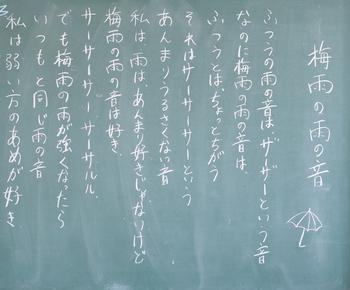 梅雨の雨の音
ふつうの雨の音は、ザーザーという音
なのに梅雨の雨の音は、
ふつうとは、ちょっとちがう
それはサーサーサーという
あんまりうるさくない音
私は、雨は、あんまり好きじゃないけど
梅雨の雨の音は好き、
サーサーサー サーサルル、
でも梅雨の雨が強くなったら
いつもと同じ雨の音
私は弱い方のあめが好き